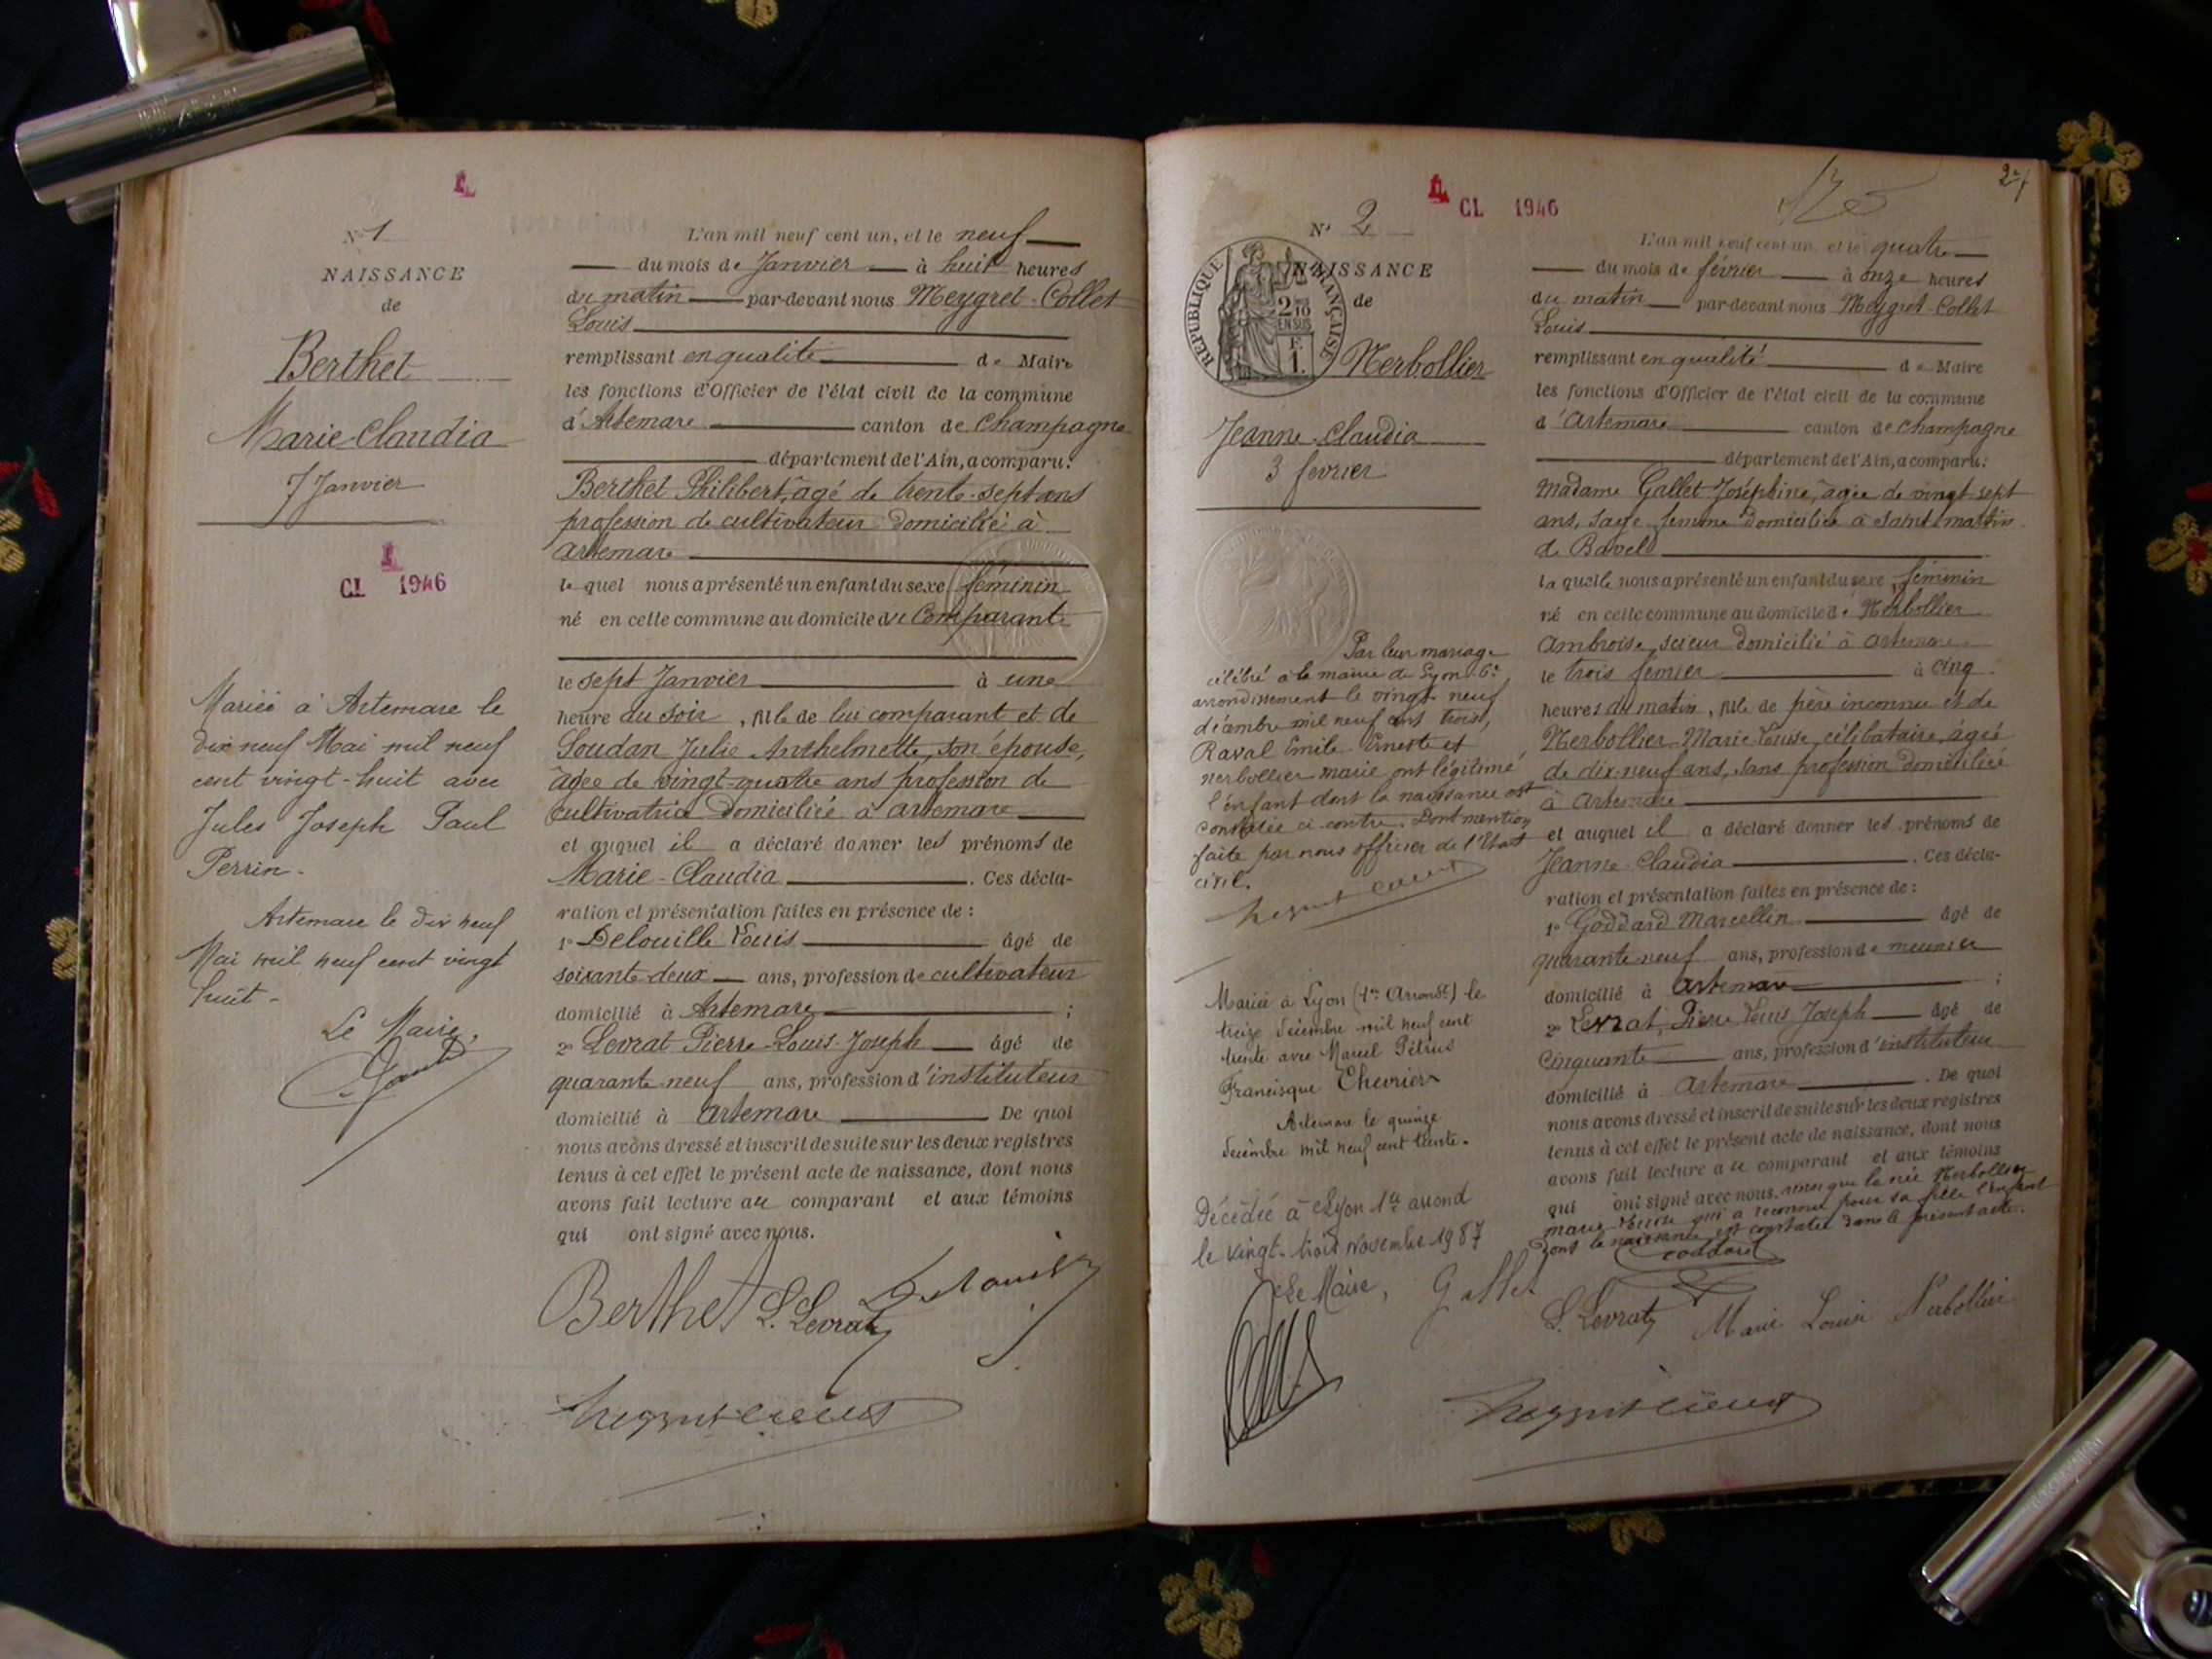 1
N° 1
NAISSANCE
de
Berthet
Marie-Claudia
7 Janvier
1
CL 1946
Mariée à Artemare le
dix neuf Mai mil neuf
cent vingt-huit avec
Jules Joseph Paul
Perrin.
Artemare le dix neuf
Mai mil neuf cent vingt
huit-
Le Maire,
L'an mil neuf cent un, et le neuf
du mois de Janvier à huit heures
du matin par-devant nous Meygret-Collet
Louis
remplissant en qualité de Maire
les fonctions d'Officier de l'état civil de la commune
d'Artemare canton de Champagne
département de l'Ain, a comparu:
Berthet Philibert, âgé de trente-sept ans
profession de cultivateur domicilié à
artemare
lequel nous a présenté un enfant du sexe féminin
né en cette commune au domicile du Comparant
le sept Janvier à une
heure du soir, fille de lui comparant et de
Soudan Julie Anthelmette, son épouse,
âgée de vingt-quatre ans profession de
cultivatrice domiciliée à artemare
et auquel il a déclaré donner les prénoms de
Marie-Claudia. Ces décla-
ration et présentation faites en présence de :
1° Delouille Louis âgé de
soixante-deux ans, profession de cultivateur
domicilié à Artemare ;
2° Levrat Pierre-Louis-Joseph âgé de
quarante-neuf ans, profession d'instituteur
domicilié à artemare De quoi
nous avons dressé et inscrit de suite sur les deux registres
tenus à cet effet le présent acte de naissance, dont nous
avons fait lecture au comparant et aux témoins
qui ont signé avec nous.
Berthet L. Levrat
1
CL 1946
27
N° 2
REPUBLIQUE FRANÇAISE
2/10
EN SUS
F.
1.
NAISSANCE
de
Nerbollier
Jeanne-Claudia
3 fevrier
Par leur mariage
célébré à la mairie de Lyon 6e
arrondissement le vingt neuf
décembre mil neuf cent trois,
Raval Emile Ernest et
nerbollier marie ont légitimé
l'enfant dont la naissance est
constatée ci-contre. Dont mention
faite par nous officier de l'Etat
civil.
Mariée à Lyon (1er Arrondt) le
treize décembre mil neuf cent
trente avec Marcel Pétrus
Francisque Chevrier
Artemare le quinze
décembre mil neuf cent trente.
Décédée à Lyon 1er arrond
le vingt-trois novembre 1987
Le Maire,
L'an mil neuf cent un et le quatre
du mois de février à onze heures
du matin par-devant nous Meygret-Collet
Louis
remplissant en qualité de Maire
les fonctions d'Officier de l'état civil de la commune
d'Artemare canton de Champagne
département de l'Ain, a comparu:
Madame Gallet Joséphine, âgée de vingt-sept
ans, sage femme domiciliée à Saint martin
de Bavel
laquelle nous a présenté un enfant du sexe féminin
né en cette commune au domicile de Nerbollier
Ambroise, scieur domicilié à artemare
le trois fevrier à cinq
heures du matin, fille de père inconnu et de
Nerbollier Marie-Louise, célibataire, âgée
de dix-neuf ans, sans profession domiciliée
à artemare
et auquel il a déclaré donner les prénoms de
Jeanne-Claudia. Ces décla-
ration et présentation faites en présence de :
1° Goddard Marcellin âgé de
quarante-neuf ans, profession de meunier
domicilié à artemare ;
2° Levrat, Pierre Louis Joseph âgé de
cinquante ans, profession d'instituteur
domicilié à Artemare. De quoi
nous avons dressé et inscrit de suite sur les deux registres
tenus à cet effet le présent acte de naissance, dont nous
avons fait lecture au comparant et aux témoins
qui ont signé avec nous. ainsi que la née Nerbollier
marie Louise qui a reconnu pour sa fille l'enfant
dont la naissance est constatée dans le présent acte.
Goddard
Gallet
L. Levrat Marie Louise Nerbollier